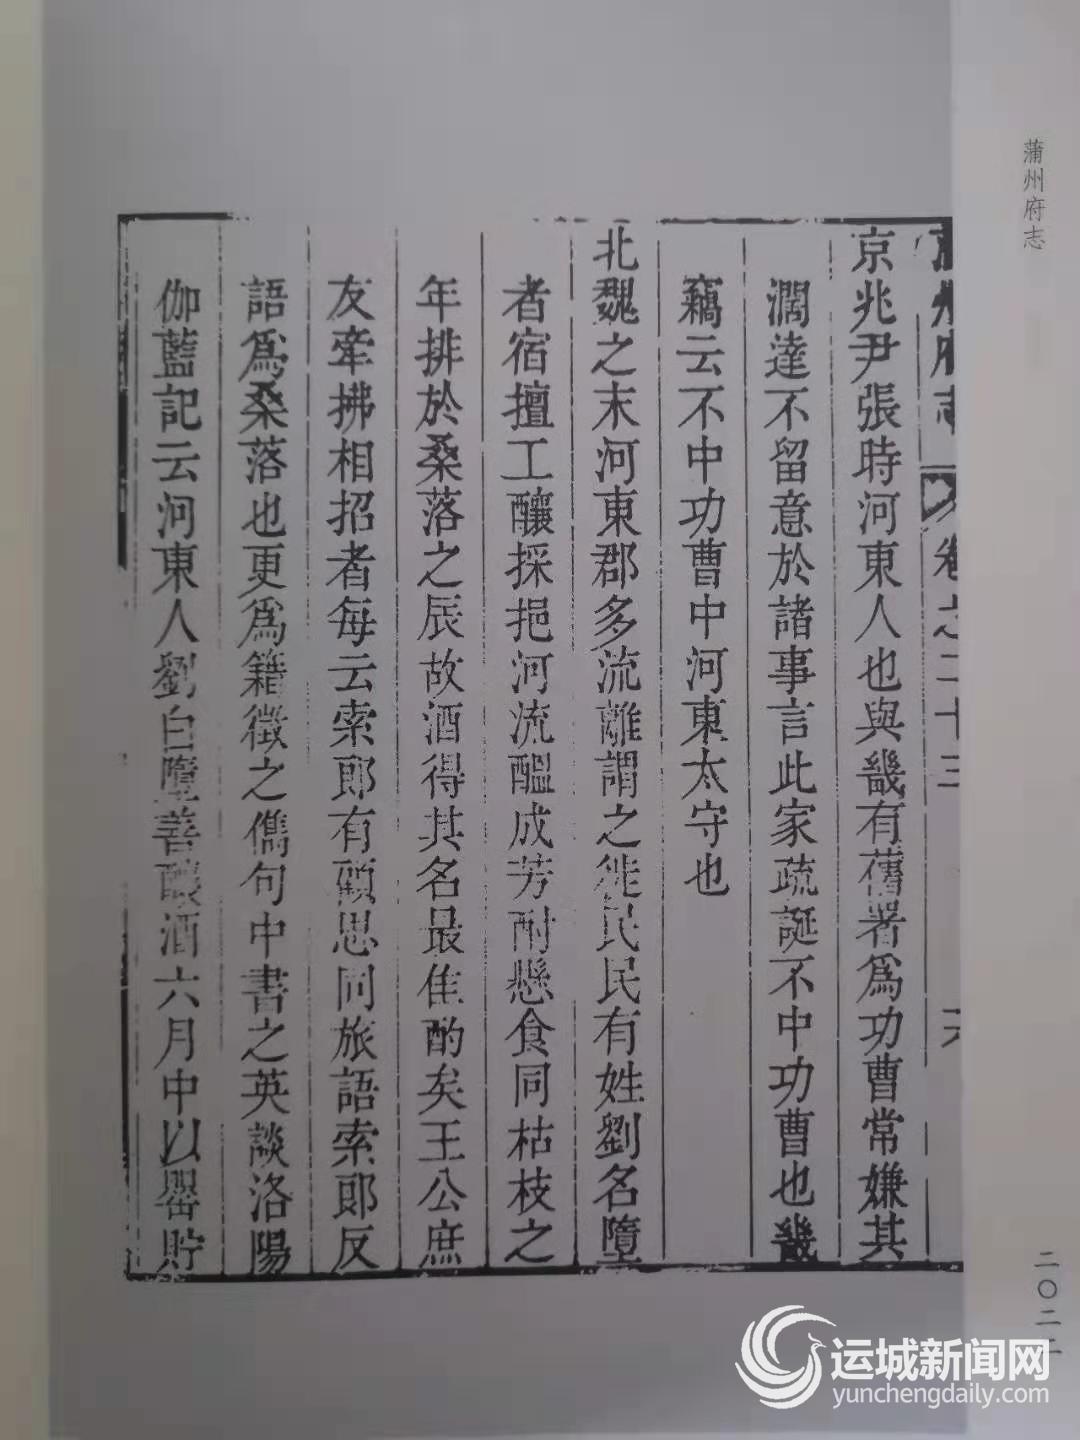 蒲州府志
二〇二二
蒲州府志 卷之二十三 六
京兆尹張時河東人也與畿有舊署爲功曹常嫌其
濶達不留意於諸事言此家疏誕不中功曹也畿
竊云不中功曹中河東太守也
北魏之末河東郡多流離謂之徙民民有姓劉名墮
者宿擅工釀採挹河流醞成芳酎懸食同枯枝之
年排於桑落之辰故酒得其名最佳酌矣王公庶
友牽拂相招者每云索郎有顧思同旅語索郎反
語爲桑落也更爲籍徵之儁句中書之英談洛陽
伽藍記云河東人劉白墮善釀酒六月中以罌貯
运城新闻网
yunchengdaily.com